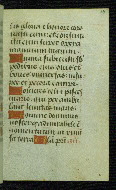 gloria et honore coro
nasti eum et constitui
sti eum super opera
manuum tuarum
Omnia subiecisti sub
pedibus eius oves et
boves universas insu
per et pecora campi
Volucres celi et pisces
maris qui perambu
lant semitas maris
Domine dominus
noster admirabile e
nomen tuum in univer
sa terra